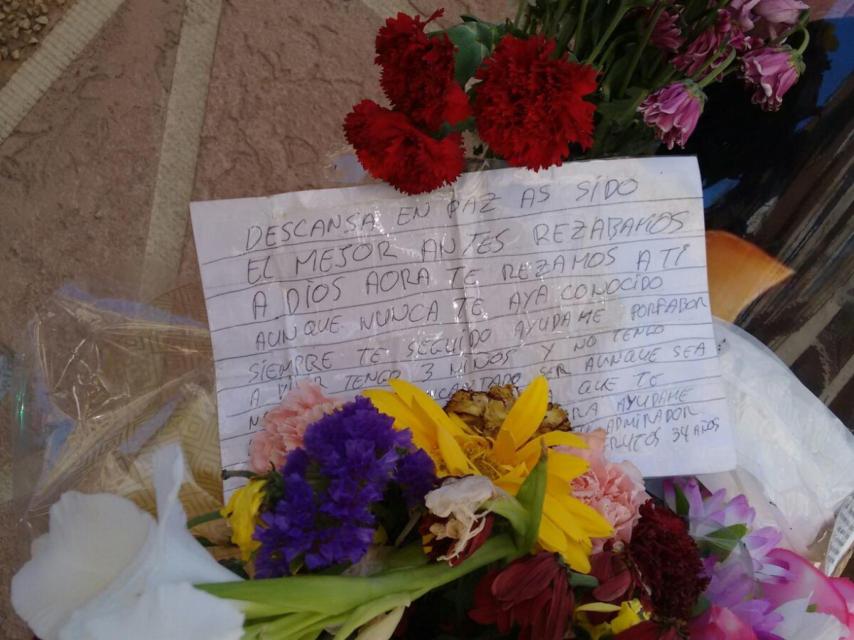 DESCANSA EN PAZ AS SIDO
EL MEJOR ANTES REZABAMOS
A DIOS AORA TE REZAMOS A TI
AUNQUE NUNCA TE AYA CONOCIDO
SIEMPRE TE SEGUIDO AYUDAME PORFADOR
A TENGO 3 NIÑOS Y NO TENGO
SER AUNQUE SEA
QUE TE
AYUDAME
ADMIRADOR
34 AÑOS